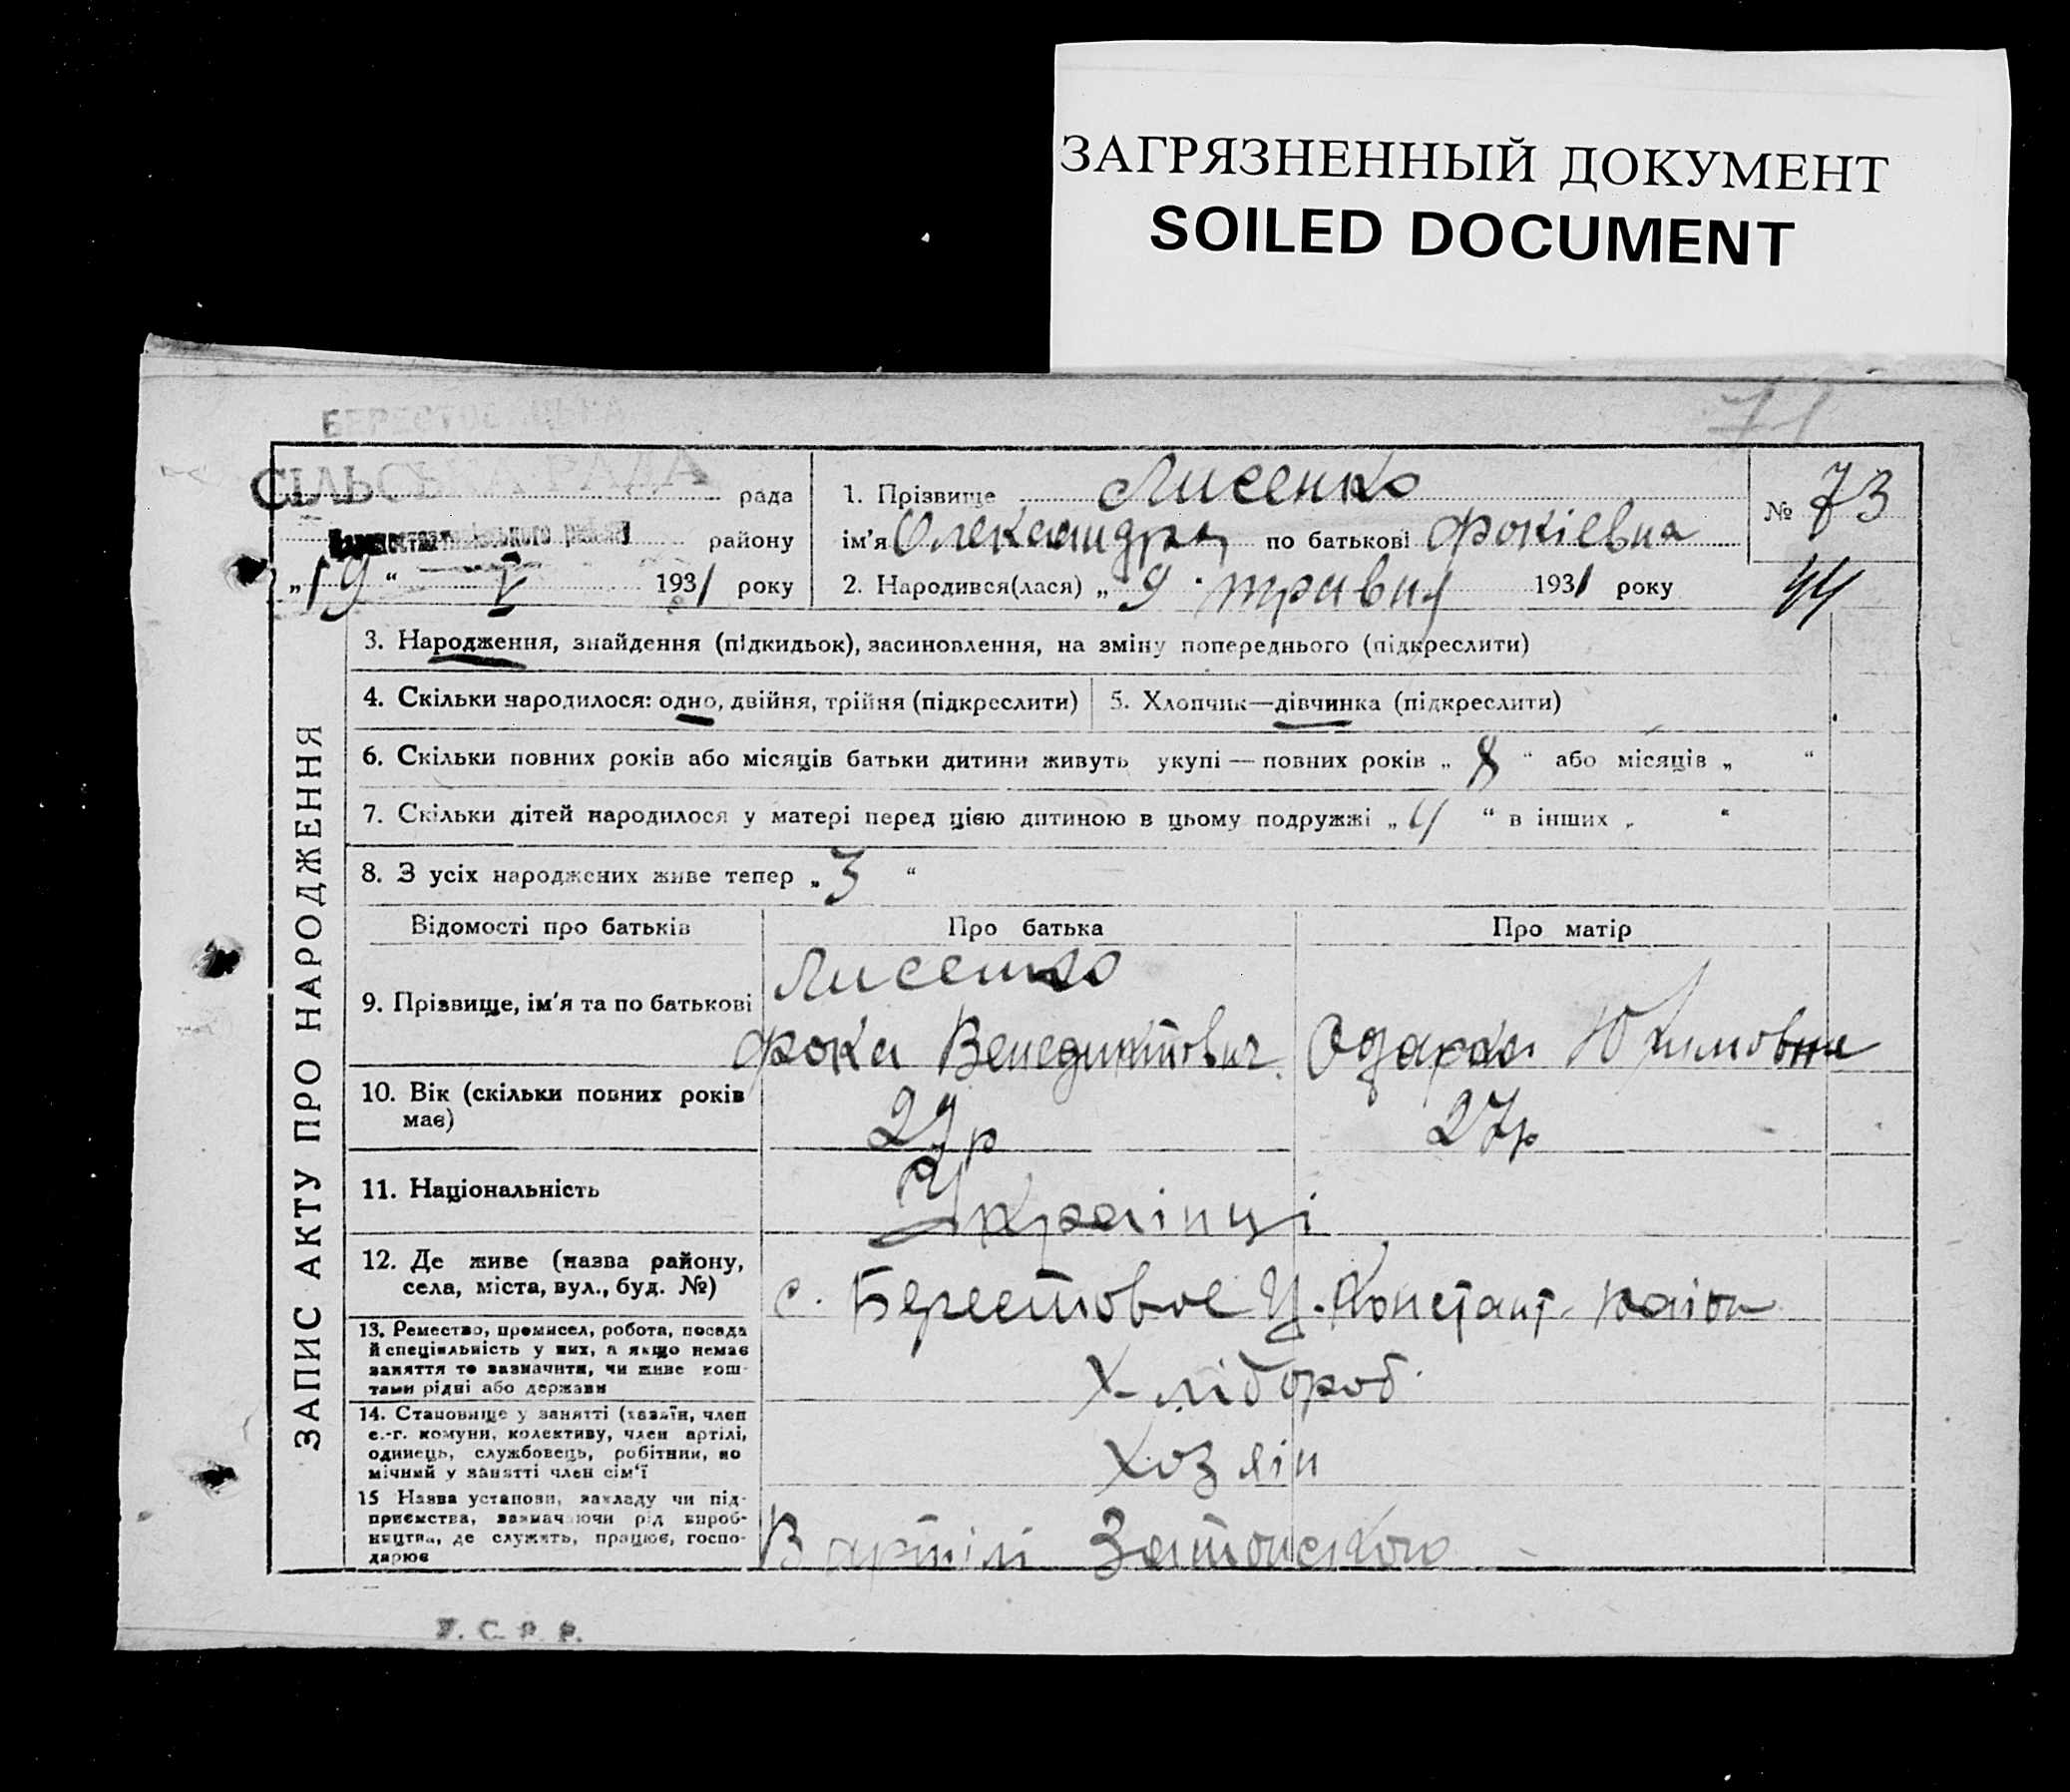 ЗАГРЯЗНЕННЫЙ ДОКУМЕНТ
SOILED DOCUMENT
71
СІЛЬСЬКА РАДА рада
району
„19“ V 1931 року
1. Прізвище Лисенко
ім'я Олександра по батькові Фокіевна
2. Народився(лася) „9 травня 1931 року
№ 73
44
ЗАПИС АКТУ ПРО НАРОДЖЕННЯ
3. Народження, знайдення (підкидьок), засиновлення, на зміну попереднього (підкреслити)
4. Скільки народилося: одно, двійня, трійня (підкреслити) 5. Хлопчик—дівчинка (підкреслити)
6. Скільки повних років або місяців батьки дитини живуть укупі — повних років „8“ або місяців „ “
7. Скільки дітей народилося у матері перед цією дитиною в цьому подружжі „4“ в інших „ “
8. З усіх народжених живе тепер „3“
Відомості про батьків Про батька Про матір
9. Прізвище, ім'я та по батькові Лисенко
Фока Венедиктович Одарка Юхимовна
10. Вік (скільки повних років
має) 27р
11. Національність Українці
12. Де живе (назва району,
села, міста, вул., буд. №) с. Берестовое Ч. Констант. район
13. Ремество, промисел, робота, посада
й спеціяльність у них, а якщо немає
заняття то зазначити, чи живе кош-
тами рідні або держави
Хлібороб
14. Становище у занятті (хазяїн, член
с.-г. комуни, колективу, член артілі,
одинець, службовець, робітник, по
мічний у занятті член сім'ї
Хозяін
15 Назва установи, закладу чи під-
приємства, зазначаючи рід вироб-
ництва, де служить, працює, госпо-
дарює
В артілі Затонского
У. С. Р. Р.